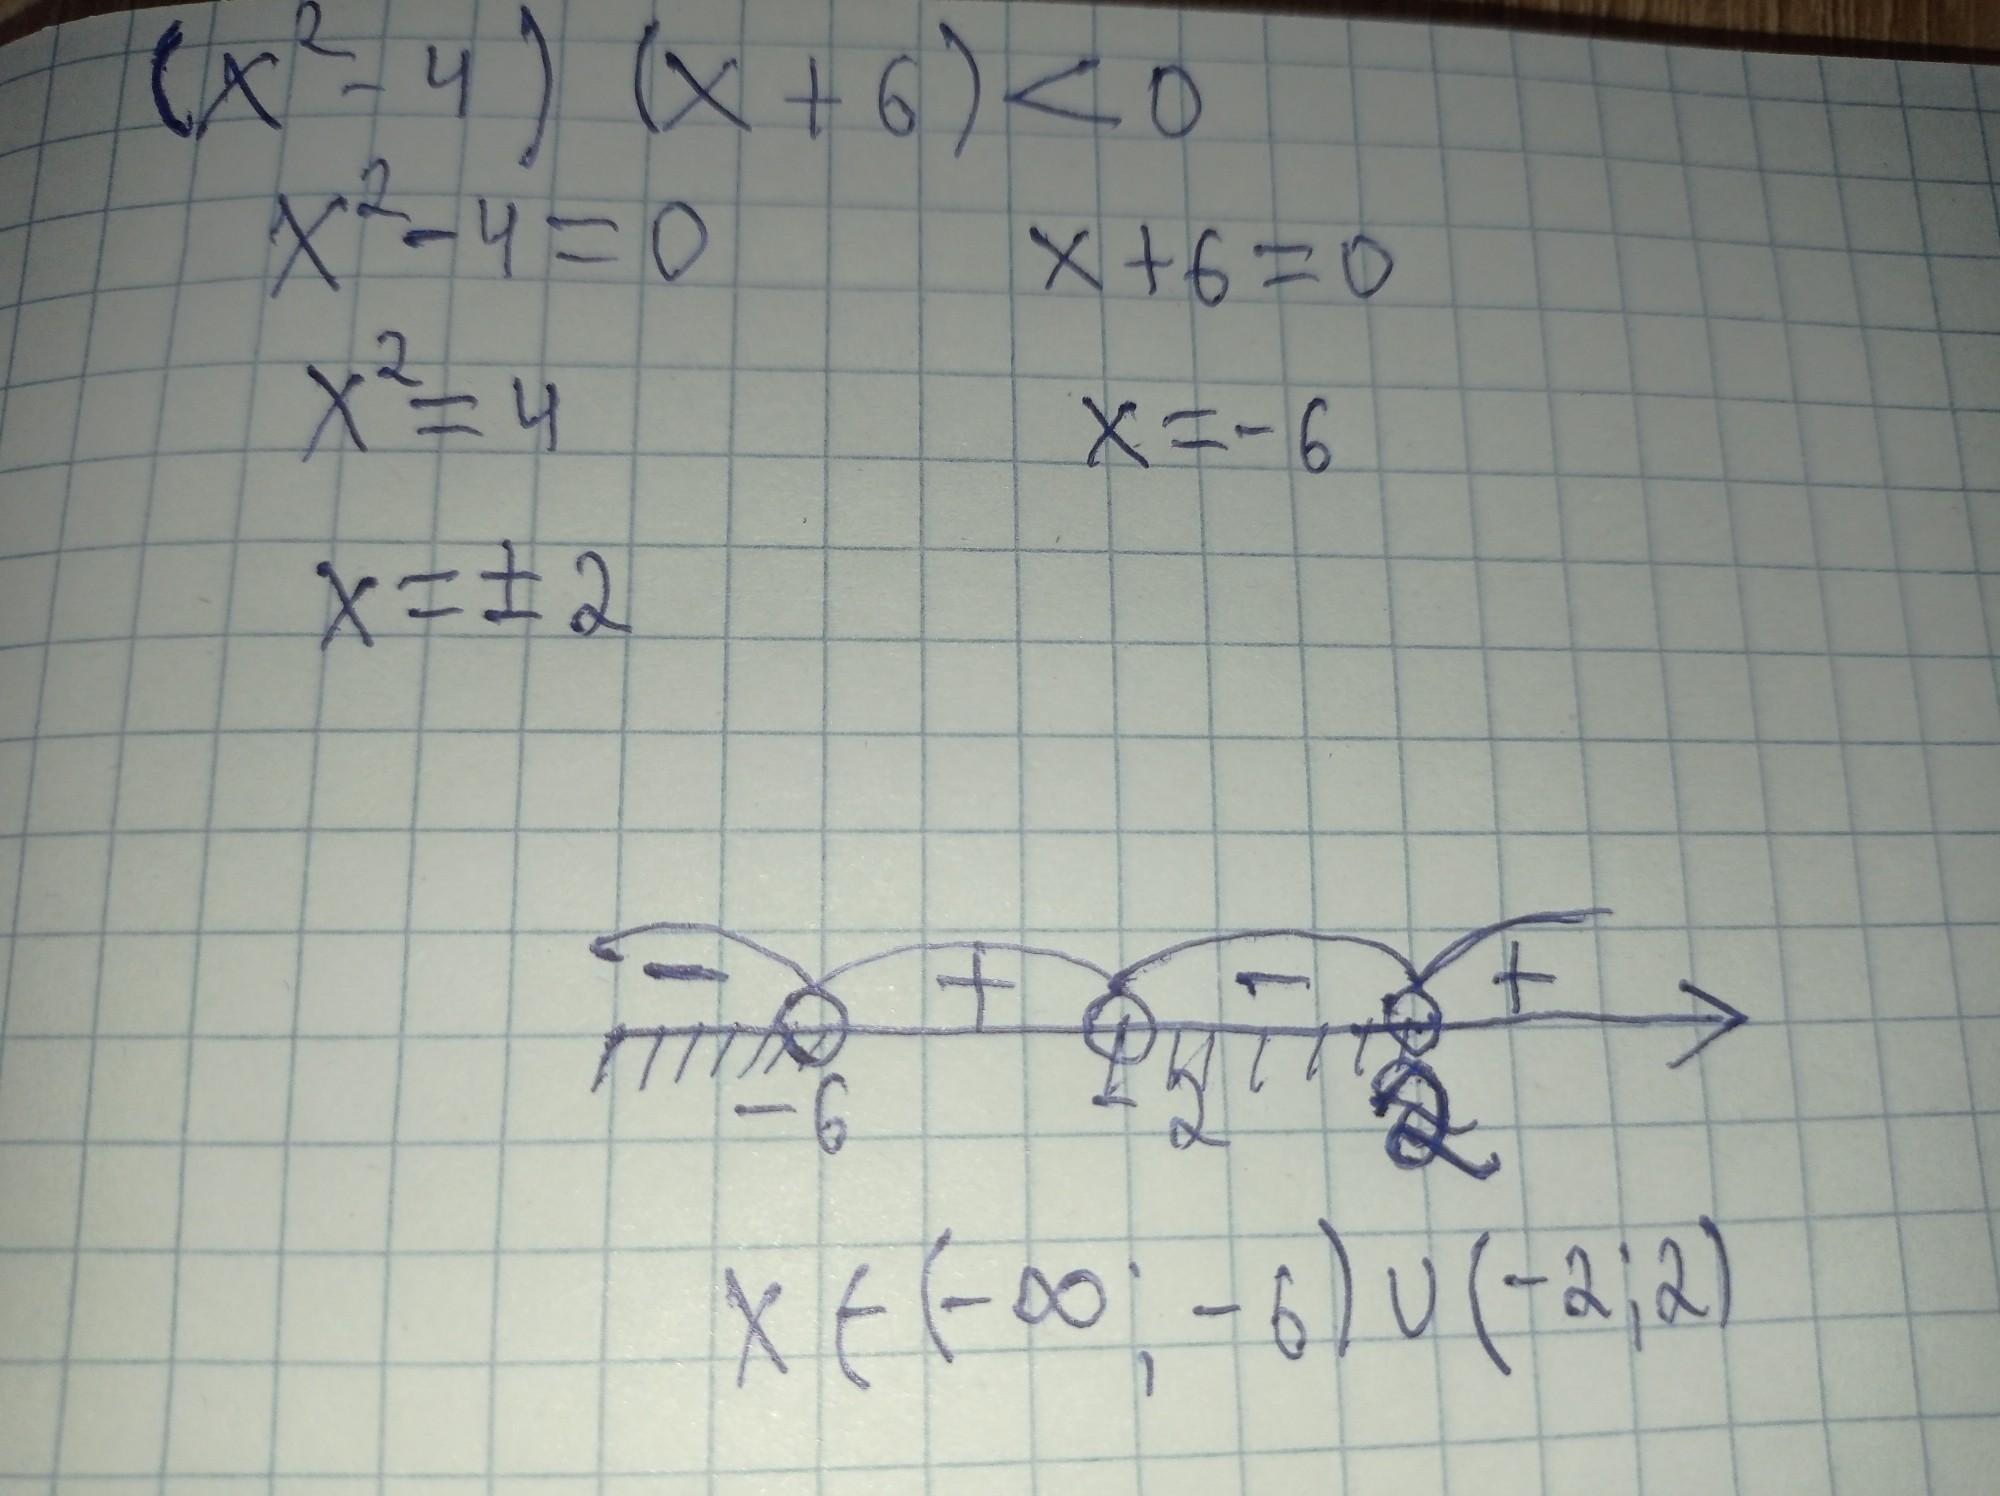 (x² - 4) (x + 6) < 0
x² - 4 = 0 x + 6 = 0
x² = 4 x = - 6
x = ± 2
- + - +
- 6 - 2 2
x ∈ (- ∞ ; - 6) ∪ (- 2 ; 2)